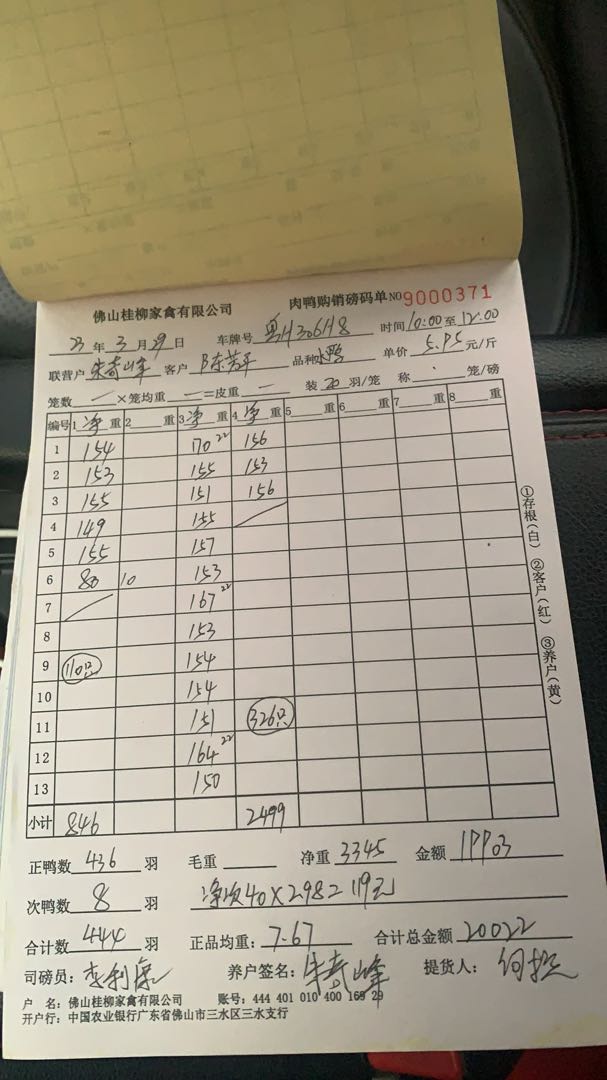 佛山桂柳家禽有限公司 肉鸭购销磅码单 NO 9000371
23 年 3 月 29 日 车牌号 粤H306H8 时间 10:00 至 12:00
联营户 朱奇峰 客户 陈芳平 品种 水鸭 单价 5.95 元/斤
笼数 — ×笼均重 — =皮重 — 装 20 羽/笼 称 笼/磅
编号 1 净 重 2 重 3 净 重 4 净 重 5 重 6 重 7 重 8 重
1 154 170 22 156
2 153 155 153
3 155 151 156
4 149 155
5 155 157
6 80 10 153
7 167 22
8 153
9 110只 154
10 154
11 151 326只
12 164 22
13 150
小计 846 2499
①存根(白) ②客户(红) ③养户(黄)
正鸭数 436 羽 毛重 净重 3345 金额 19903
次鸭数 8 羽 净次40×2.98=119元
合计数 444 羽 正品均重: 7.67 合计总金额 20022
司磅员: 李利康 养户签名: 朱奇峰 提货人:
户 名: 佛山桂柳家禽有限公司 账号: 444 401 010 400 169 29
开户行: 中国农业银行广东省佛山市三水区三水支行